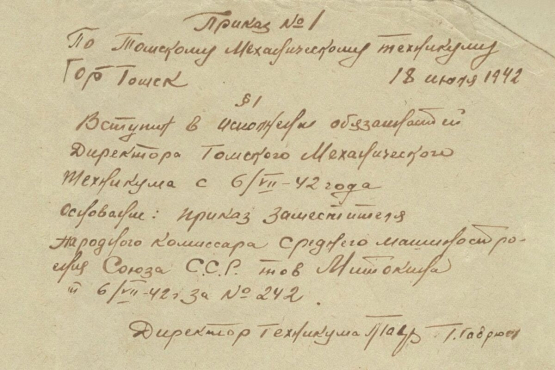 Приказ №1
По Томскому Механическому техникуму
Гор Томск 18 июля 1942
§1
Вступил в исполнение обязанностей
Директора Томского Механического
Техникума с 6/VII-42 года
Основание: приказ заместителя
Народного комиссара Среднего машиностро-
ения Союза С.С.Р. тов
6/VII-42 г за № 242.
Директор Техникума